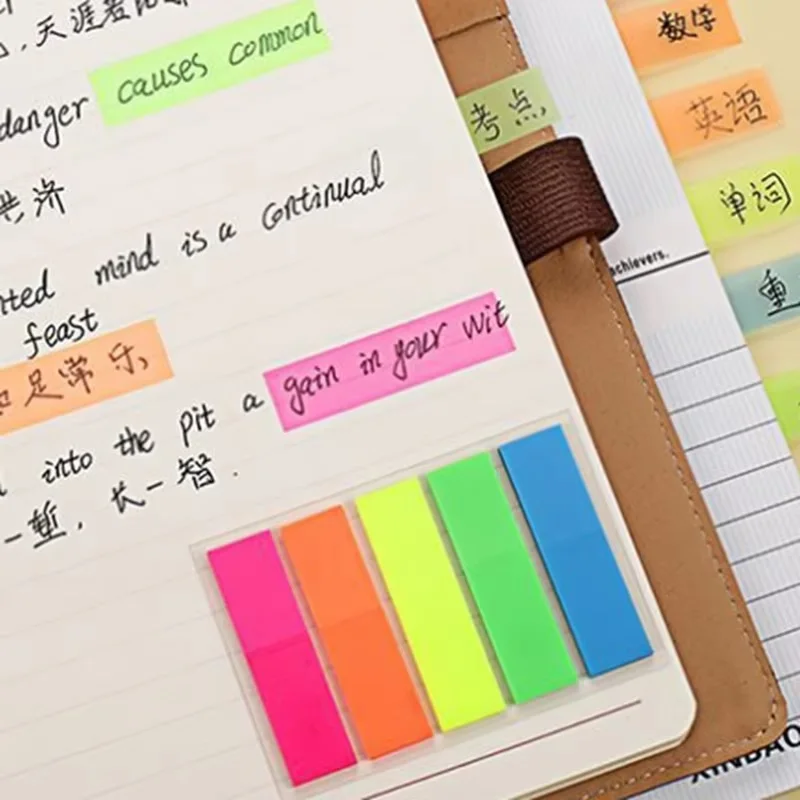 天涯若比
danger causes common
共济
mind is a continual
feast
足常乐,
into the pit a gain in your wit
一堑,长一智.
考点
数学
英语
单词
重
achievers.
XINBAO